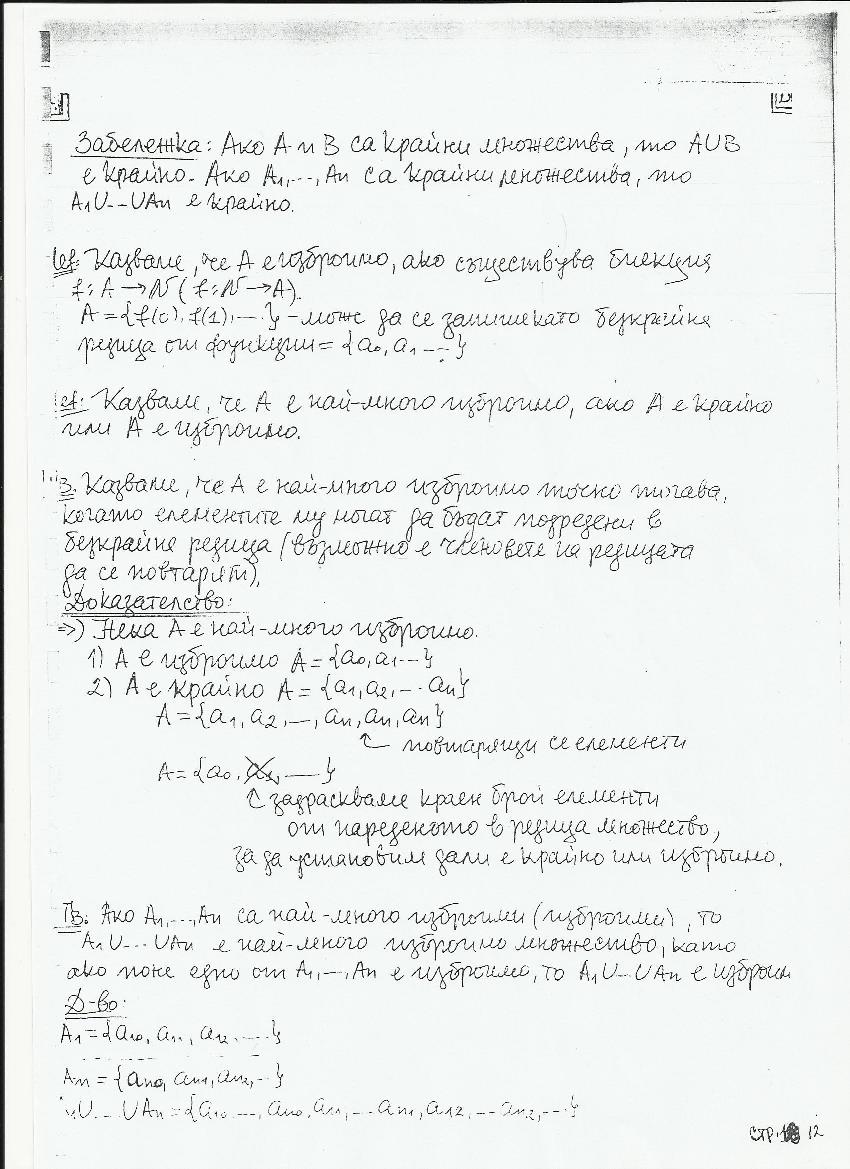 Забележка: Ако A и B са крайни множества, то A∪B
е крайно. Ако A₁,...,Aₙ са крайни множества, то
A₁∪...∪Aₙ е крайно.
Def: Казваме, че A е изброимо, ако съществува биекция
f: A → N (f: N → A).
A = {f(0), f(1), ...} - може да се запише като безкрайна
редица от функции = {a₀, a₁ ...}
Def: Казваме, че A е най-много изброимо, ако A е крайно
или A е изброимо.
Тв. Казваме, че A е най-много изброимо точно тогава,
когато елементите му могат да бъдат подредени в
безкрайна редица (възможно е членовете на редицата
да се повтарят).
Доказателство:
=>) Нека A е най-много изброимо.
1) A е изброимо A = {a₀, a₁ ...}
2) A е крайно A = {a₁, a₂, ... aₙ}
A = {a₁, a₂, ..., aₙ, aₙ, aₙ}
повтарящи се елементи
A = {a₀, a₁, ...}
задраскваме краен брой елементи
от нареденото в редица множество,
за да установим дали е крайно или изброимо.
Тв: Ако A₁,...,Aₙ са най-много изброими (изброими), то
A₁∪...∪Aₙ е най-много изброимо множество, като
ако поне едно от A₁,...,Aₙ е изброимо, то A₁∪...∪Aₙ е изброим
Д-во:
A₁ = {a₁₀, a₁₁, a₁₂, ...}
Aₙ = {aₙ₀, aₙ₁, aₙ₂, ...}
A₁∪...∪Aₙ = {a₁₀, ..., aₙ₀, a₁₁, ... aₙ₁, a₁₂, ... aₙ₂, ...}
СТР. 12